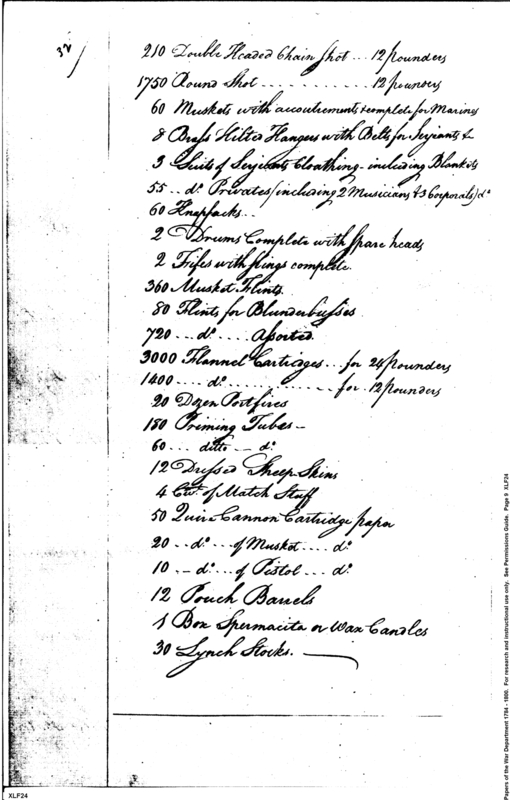 32/
210 Double Headed Chain Shot ... 12 pounders
1750 Round Shot .............. 12 pounders
60 Muskets with accoutrements complete for Marines
8 Brass Hilted Hangers with Belts for Serjeants &
3 Suits of Serjeants Cloathing - including Blankets
55 .. do. Privates (including 2 Musicians & 3 Corporals) do.
60 Knapsacks ..
2 Drums Complete with spare heads
2 Fifes with slings complete.
360 Musket Flints.
80 Flints for Blunderbusses
720 ... do. .... Assorted.
3000 Flannel Cartridges ... for 24 pounders
1400 .... do. .............. for 12 pounders
20 Dozen Portfires
180 Priming Tubes -
60 ... ditto - do.
12 Dressed Sheep Skins
4 Cwt. of Match Stuff
50 Quire Cannon Cartridge paper
20 .. do. .. of Musket .... do.
10 .. do. ... of Pistol ... do.
12 Pouch Barrels
1 Box Spermacita or Wax Candles
30 Lynch Stocks.
XLF24
Papers of the War Department 1784 - 1800. For research and instructional use only. See Permissions Guide. Page 9 XLF24